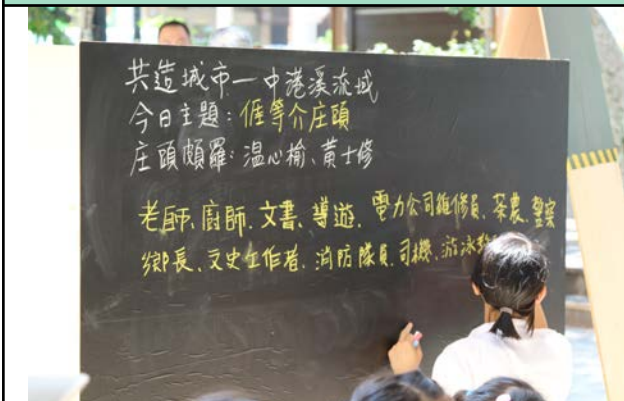 共造城市一中港溪流域
今日主題：𠊎等介庄頭
庄頭頗羅：温心榆、黄士修
老師、廚師、文書、導遊、電力公司維修員、茶農、警察
鄉長、文史工作者、消防隊員、司機、游泳